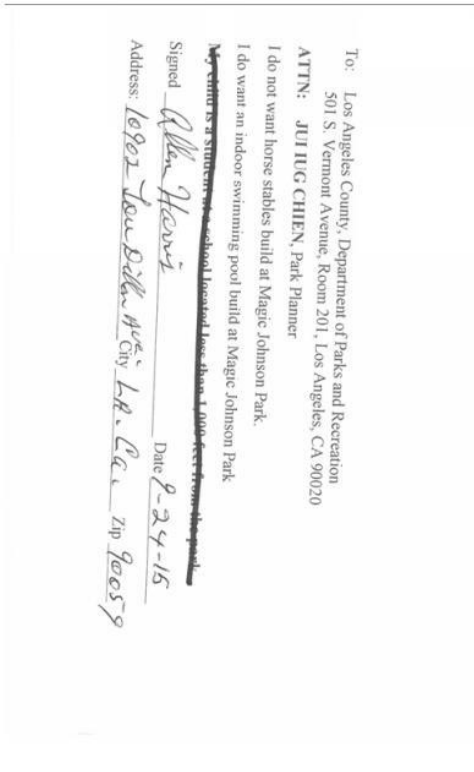 To: Los Angeles County, Department of Parks and Recreation
501 S. Vermont Avenue, Room 201, Los Angeles, CA 90020
ATTN: JUI IUG CHIEN, Park Planner
I do not want horse stables build at Magic Johnson Park.
I do want an indoor swimming pool build at Magic Johnson Park
My child is a student at a school located less than 1,000 feet from the park
Signed Allen Harris Date 9-24-15
Address: 10902 Lou Dillon Ave. City LA. Ca. Zip 90059